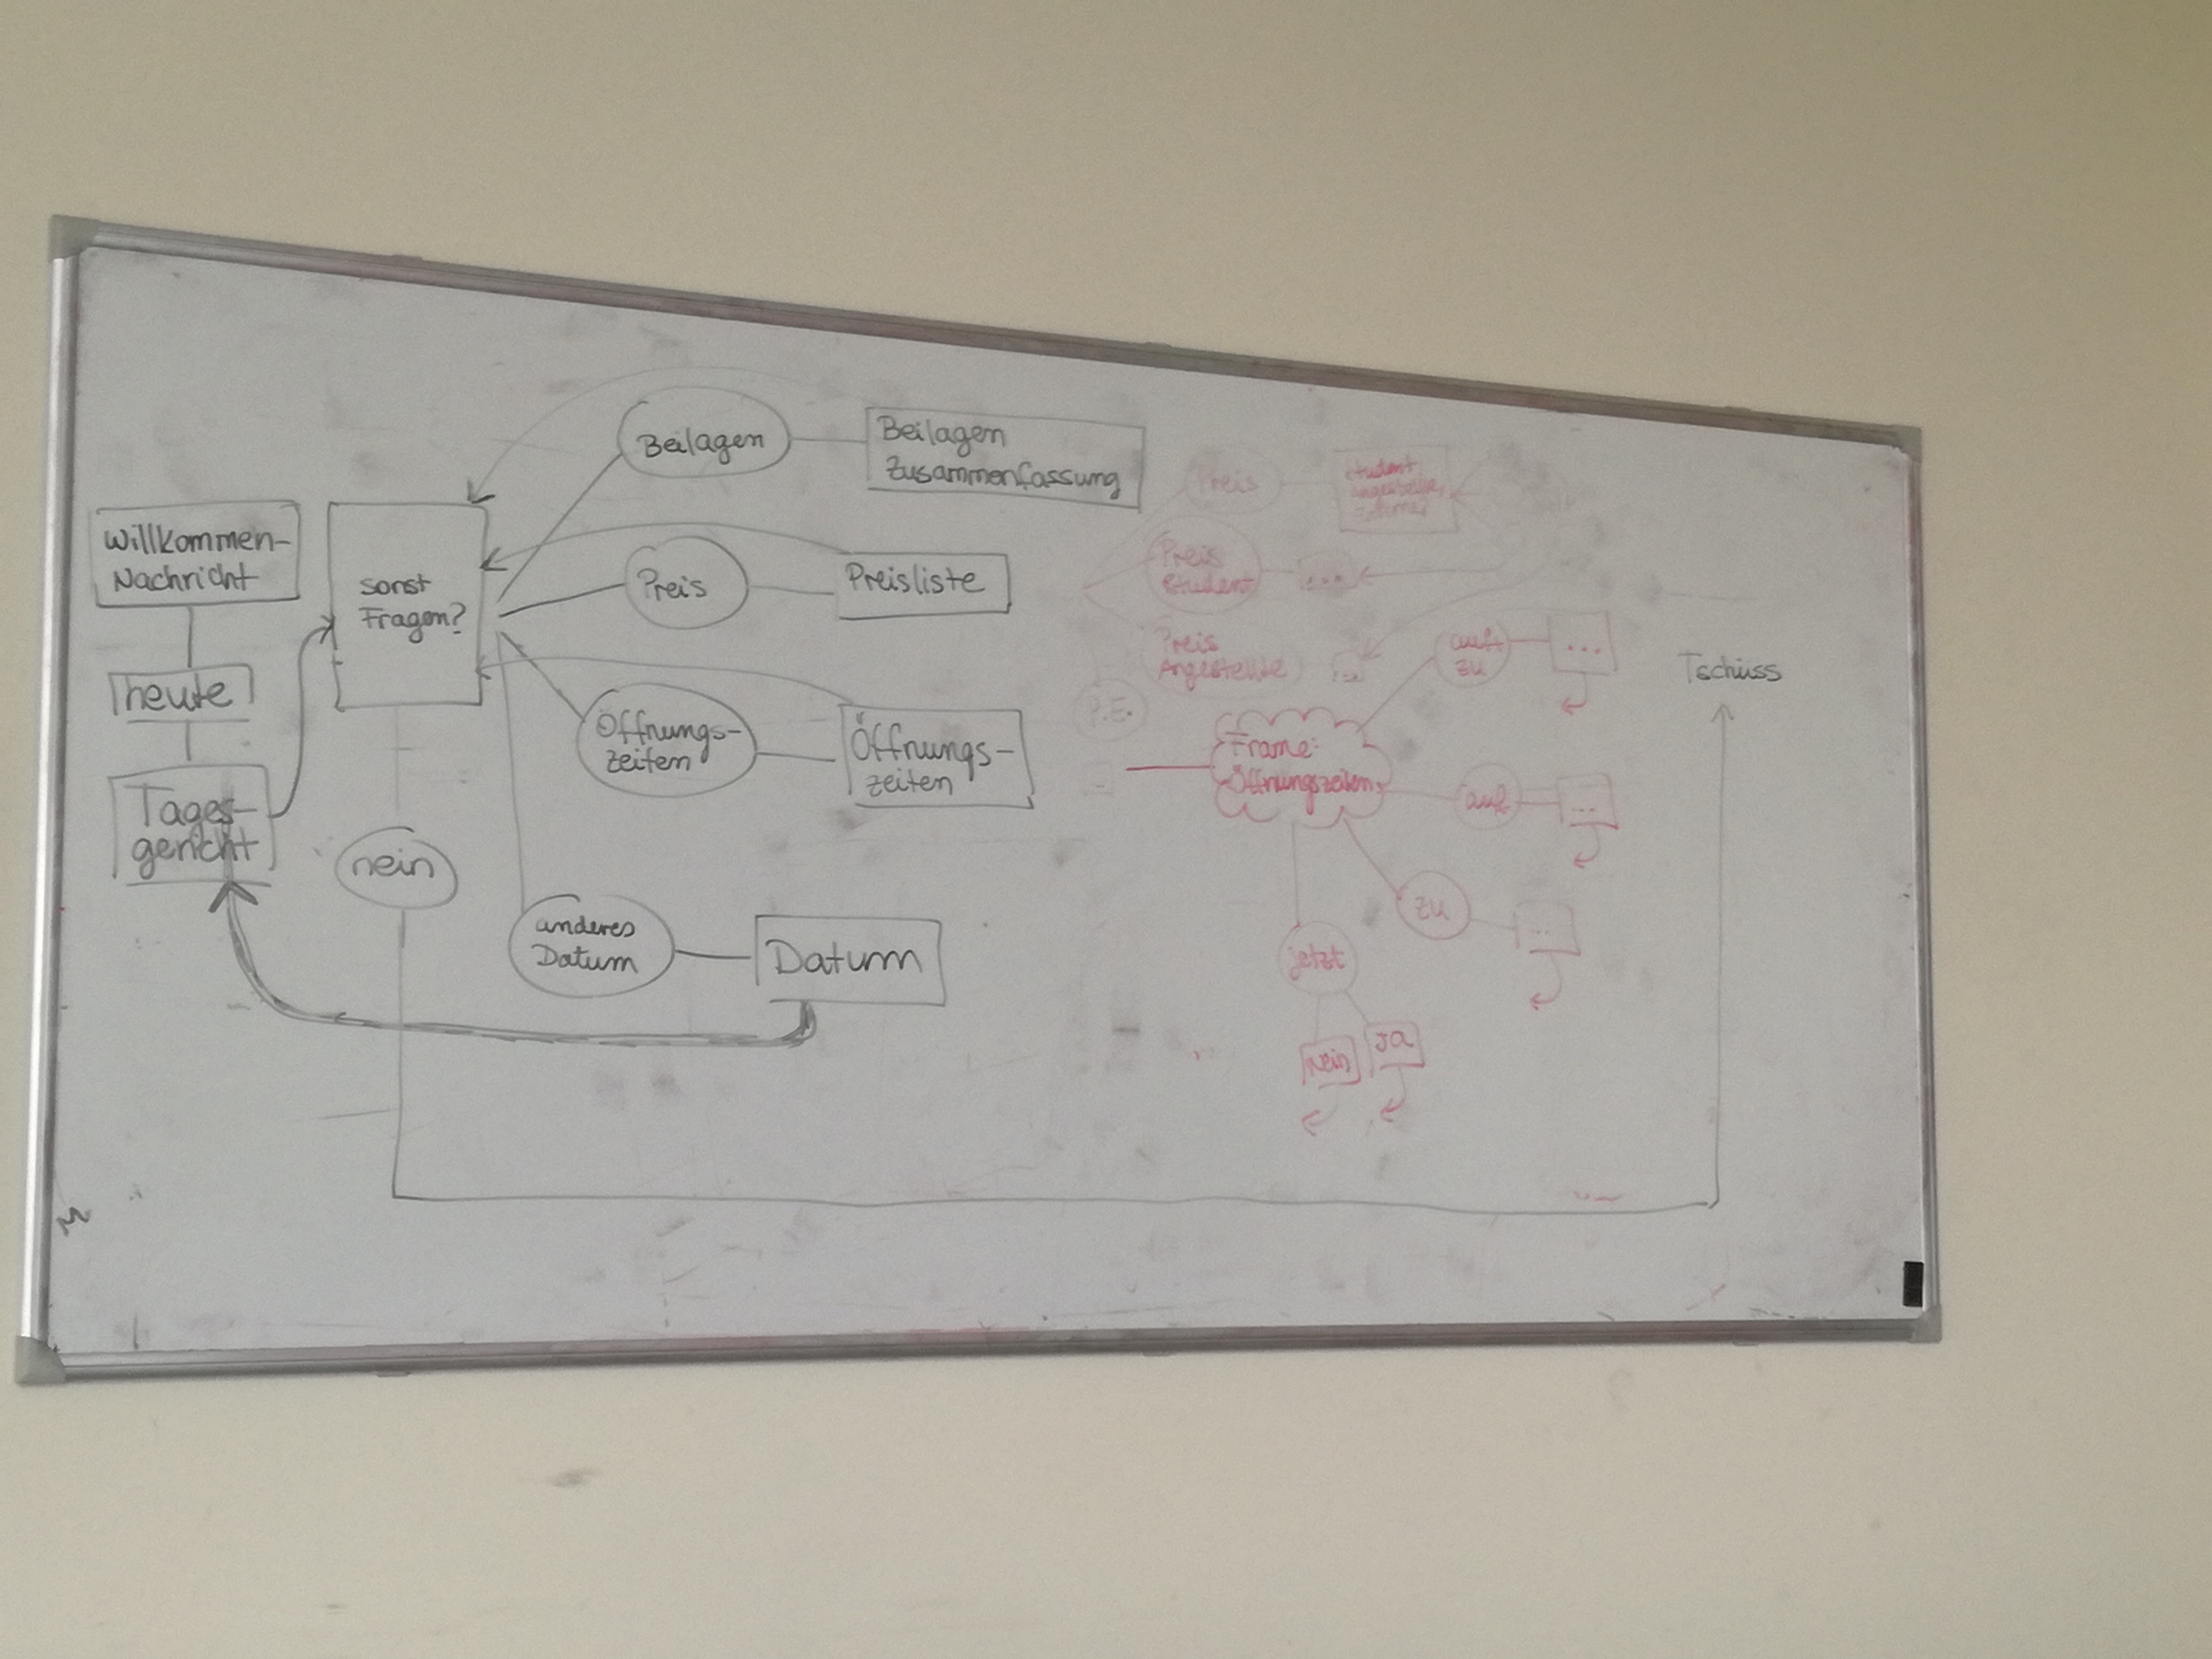 Willkommen-
Nachricht
heute
Tages-
gericht
sonst
Fragen?
nein
Beilagen
Beilagen
Zusammenfassung
Preis
Preisliste
Öffnungs-
zeiten
Öffnungs-
zeiten
anderes
Datum
Datum
Preis
Student
Preis
Student
...
Preis
Angestellte
...
P.E.
Frame:
Öffnungszeiten
auf+
zu
...
auf
...
zu
...
jetzt
Nein
Ja
Tschüss